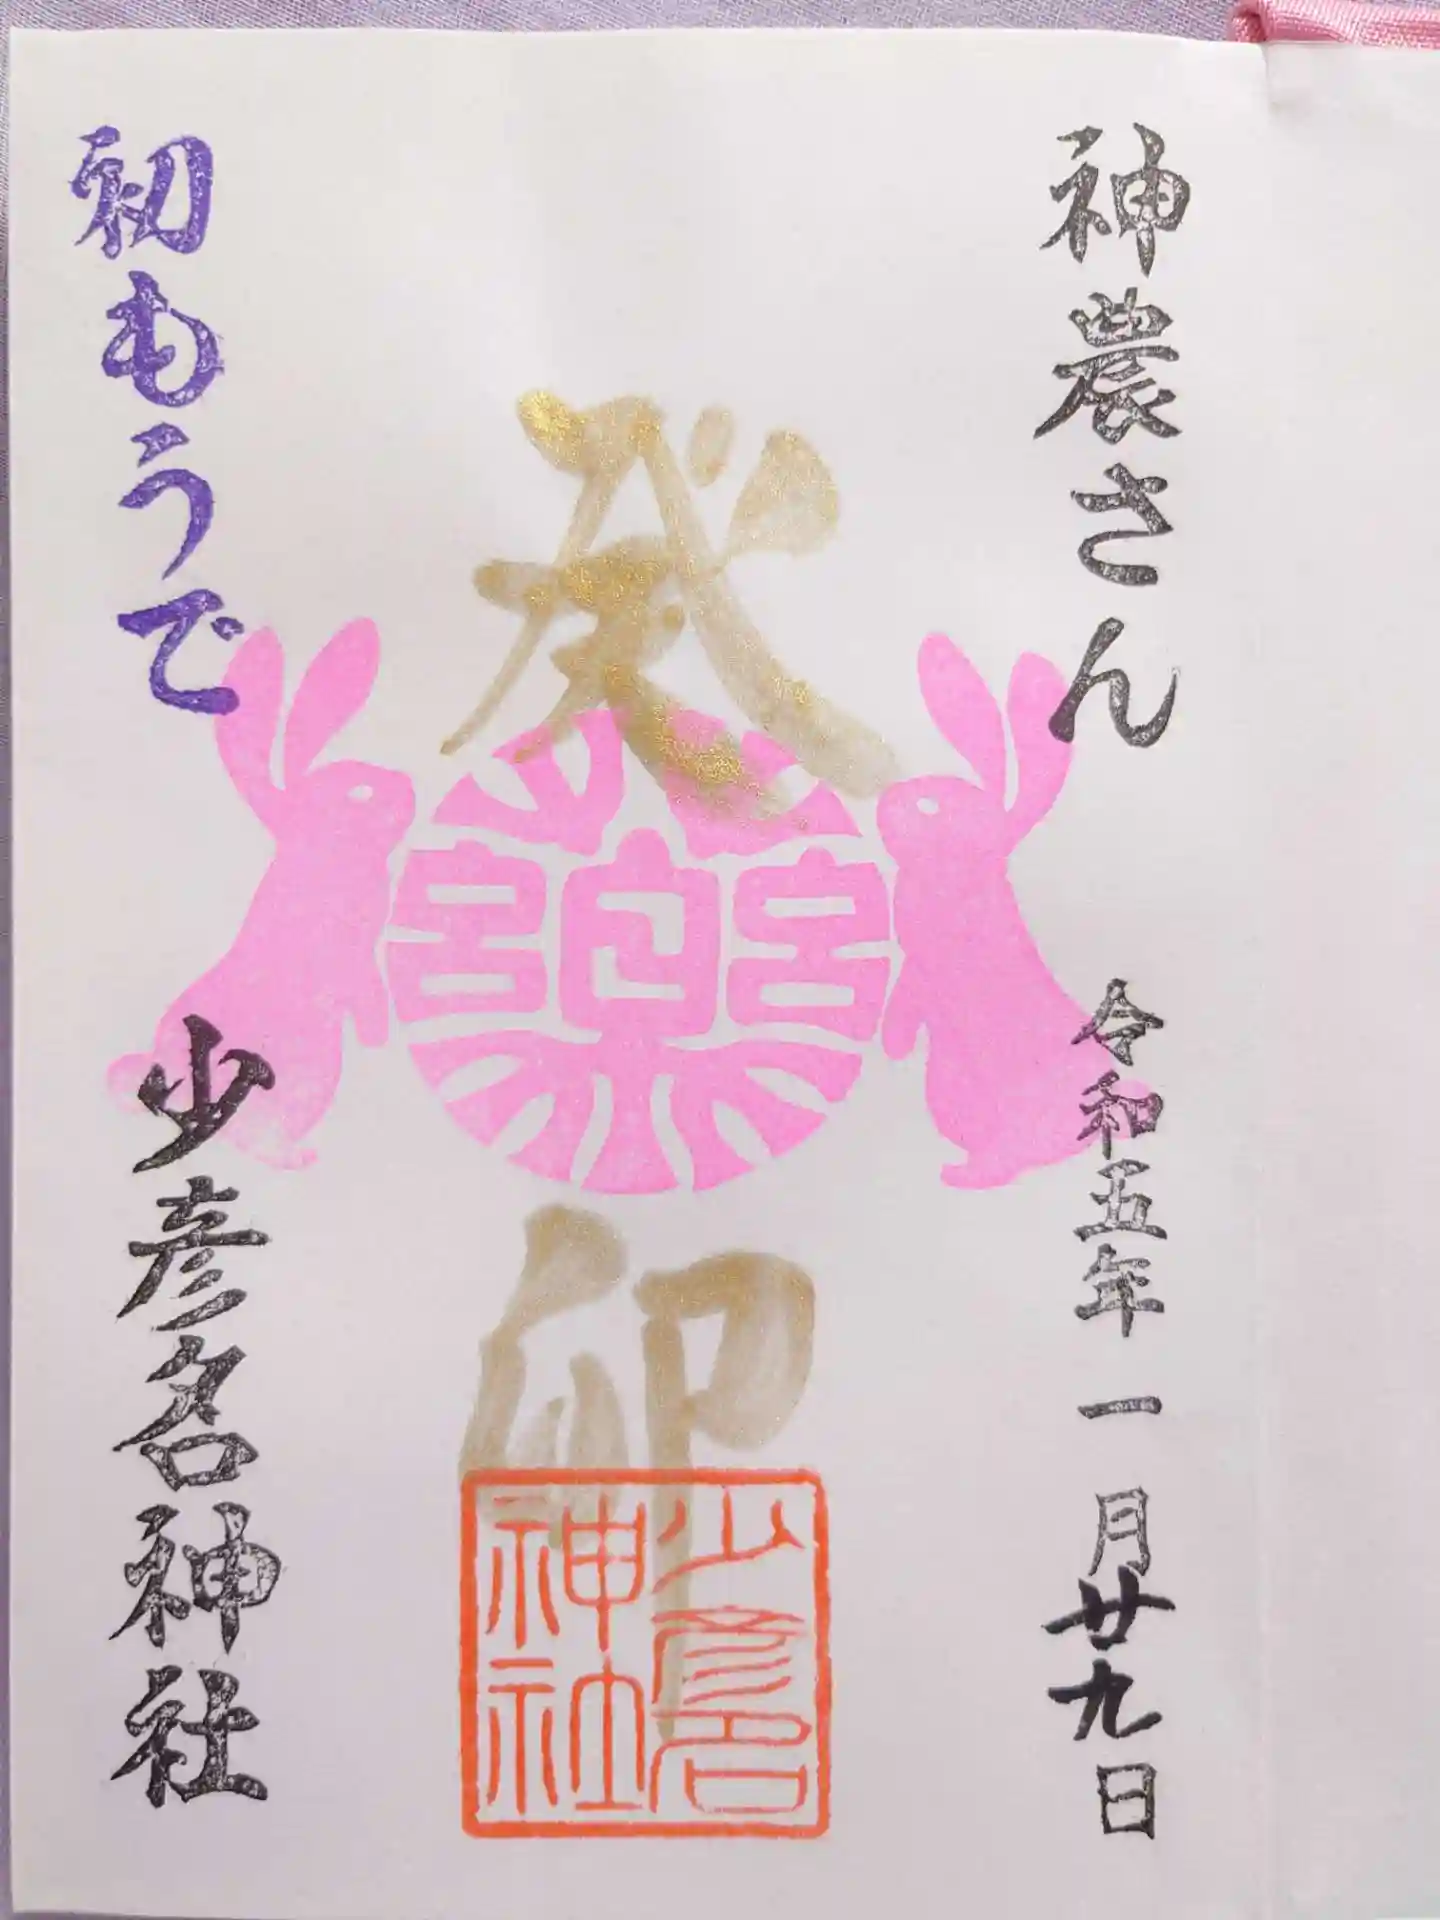 神農さん
令和五年一月廿九日
癸卯
薬
少彦名
神社
初もうで
少彦名神社